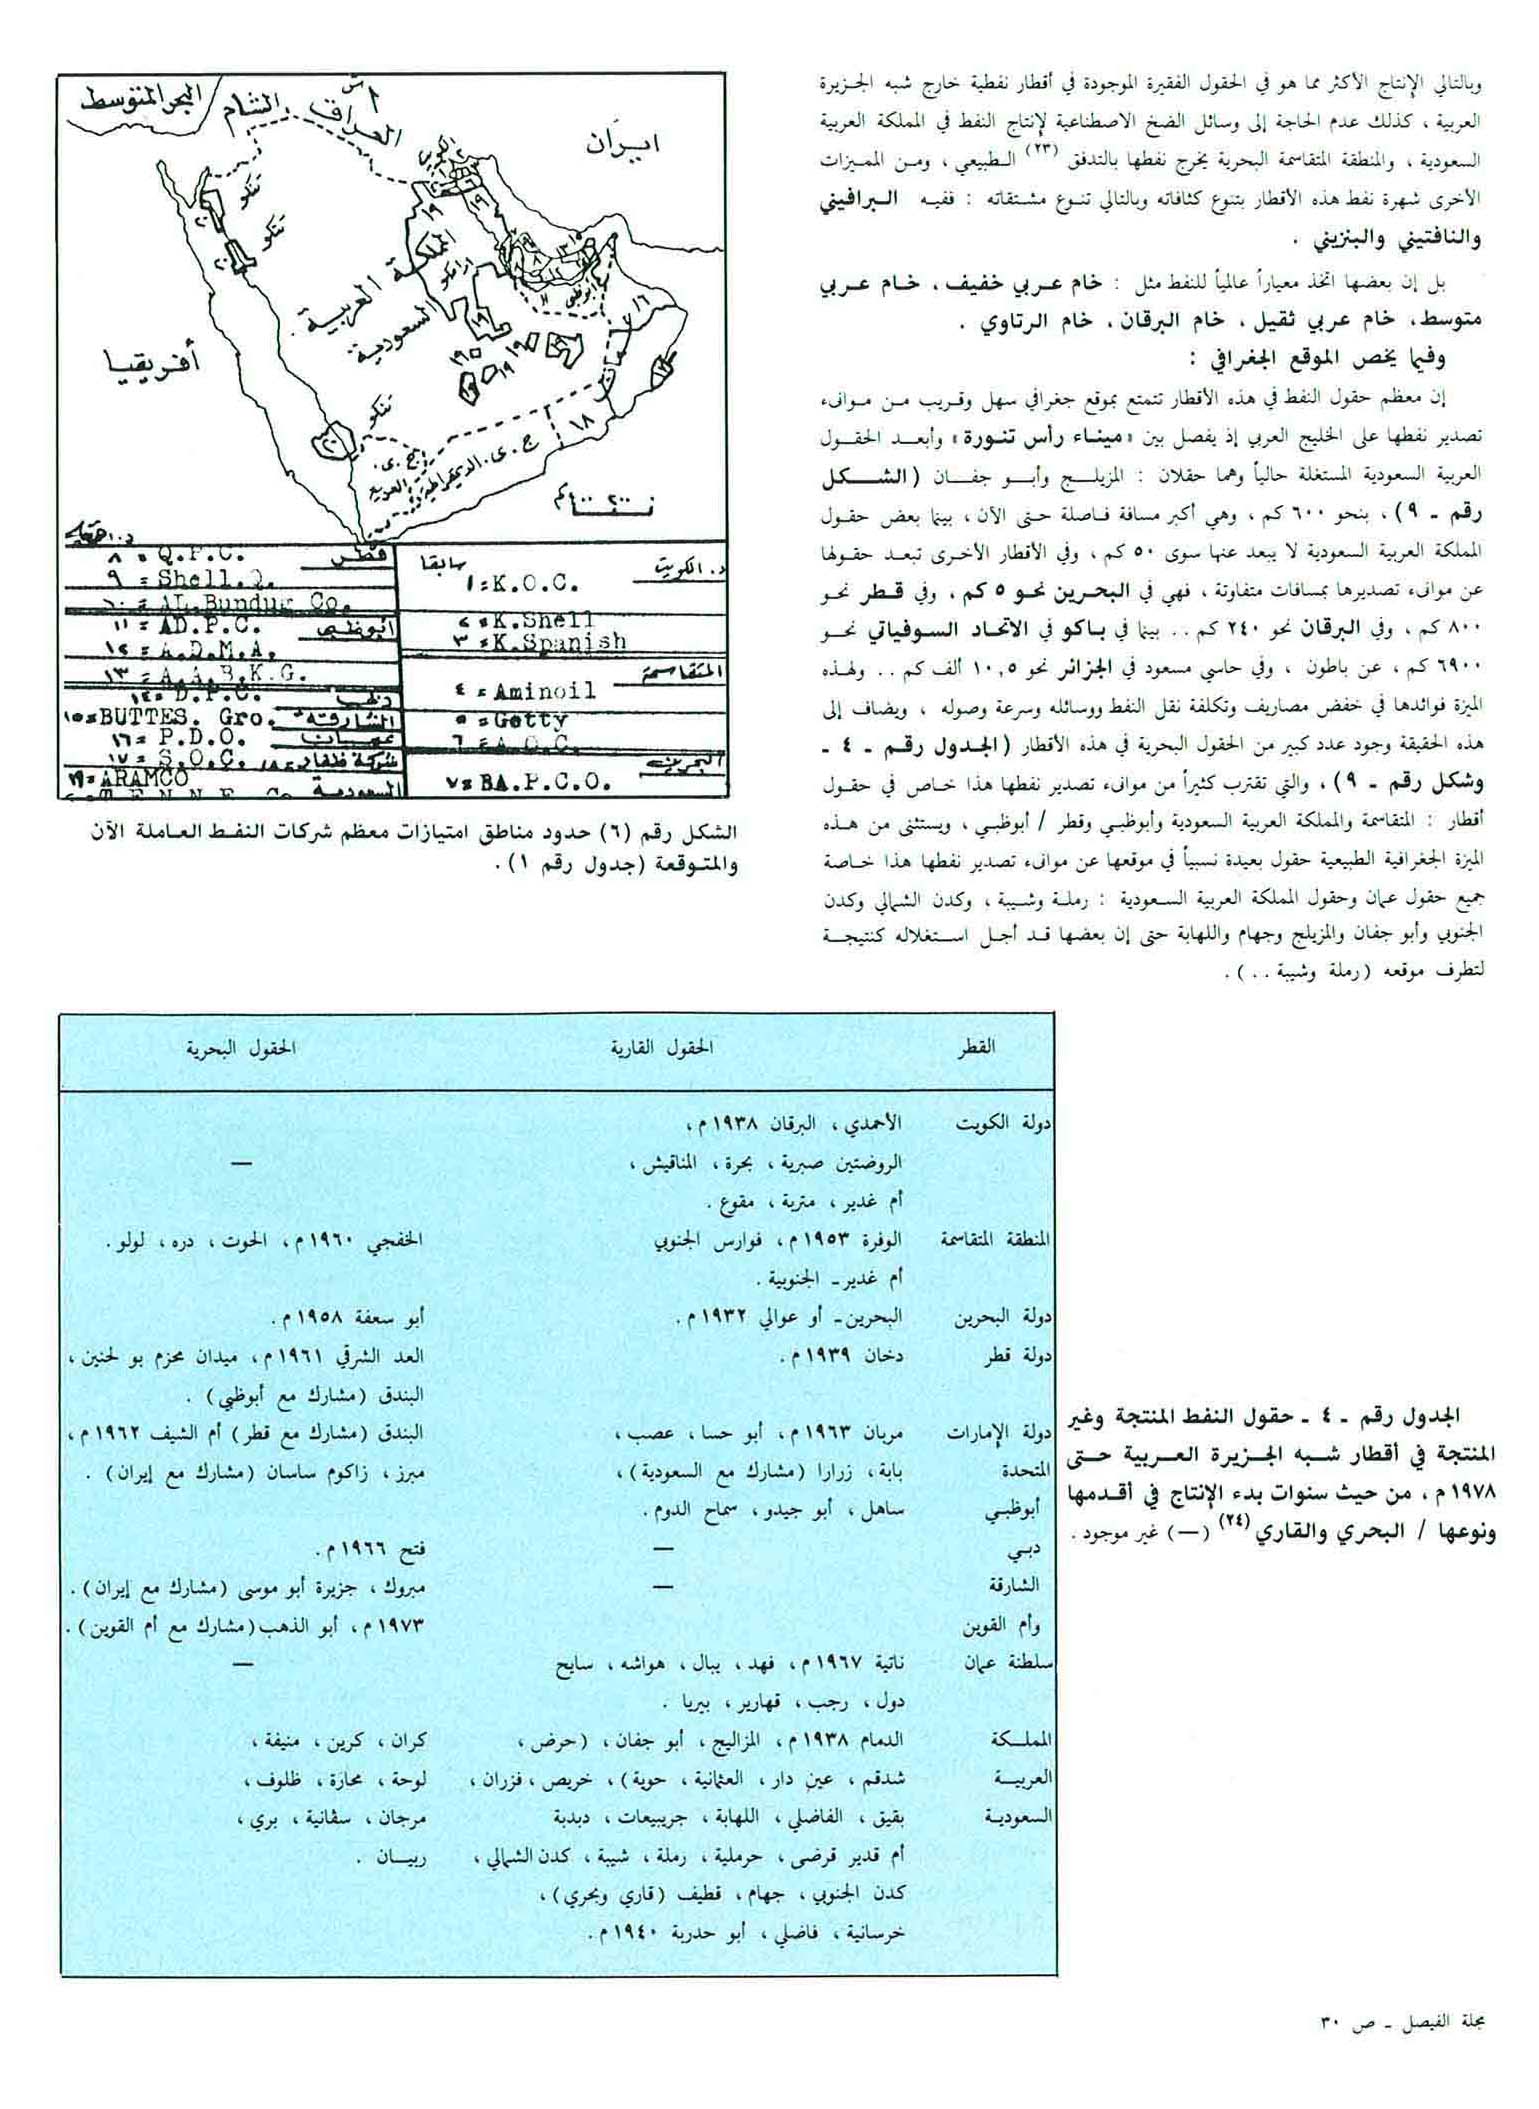 وبالتالي الإنتاج الأكثر مما هو في الحقول الفقيرة الموجودة في أقطار نفطية خارج شبه الجزيرة
العربية ، كذلك عدم الحاجة إلى وسائل الضخ الاصطناعية لإنتاج النفط في المملكة العربية
السعودية ، والمنطقة المتقاسمة البحرية يخرج نفطها بالتدفق (٢٣) الطبيعي ، ومن المميزات
الأخرى شهرة نفط هذه الأقطار بتنوع كثافاته وبالتالي تنوع مشتقاته : ففيه البرافيني
والنافتيني والبنزيني .
بل إن بعضها اتخذ معياراً عالمياً للنفط مثل : خام عربي خفيف ، خام عربي
متوسط ، خام عربي ثقيل ، خام البرقان ، خام الرتاوي .
وفيما يخص الموقع الجغرافي :
إن معظم حقول النفط في هذه الأقطار تتمتع بموقع جغرافي سهل وقريب من موانىء
تصدير نفطها على الخليج العربي إذ يفصل بين «ميناء رأس تنورة» وأبعد الحقول
العربية السعودية المستغلة حالياً وهما حقلان : المزيلج وأبو جفان (الشكل
رقم ـ ٩) ، بنحو ٦٠٠ كم ، وهي أكبر مسافة فاصلة حتى الآن ، بينما بعض حقول
المملكة العربية السعودية لا يبعد عنها سوى ٥٠ كم ، وفي الأقطار الأخرى تبعد حقولها
عن موانىء تصديرها بمسافات متفاوتة ، فهي في البحرين نحو ٥ كم ، وفي قطر نحو
٨٠٠ كم ، وفي البرقان نحو ٢٤٠ كم .. بينما في باكو في الاتحاد السوفياتي نحو
٦٩٠٠ كم ، عن باطون ، وفي حاسي مسعود في الجزائر نحو ١٠,٥ ألف كم .. ولهذه
الميزة فوائدها في خفض مصاريف وتكلفة نقل النفط ووسائله وسرعة وصوله ، ويضاف إلى
هذه الحقيقة وجود عدد كبير من الحقول البحرية في هذه الأقطار (الجدول رقم ـ ٤ ـ
وشكل رقم ـ ٩) ، والتي تقترب كثيراً من موانىء تصدير نفطها هذا خاص في حقول
أقطار : المتقاسمة والمملكة العربية السعودية وأبوظبي وقطر / أبوظبي ، ويستثنى من هذه
الميزة الجغرافية الطبيعية حقول بعيدة نسبياً في موقعها عن موانىء تصدير نفطها هذا خاصة
جميع حقول عمان وحقول المملكة العربية السعودية : رملة وشيبة ، وكدن الشمالي وكدن
الجنوبي وأبو جفان والمزيلج وجهام واللهابة حتى إن بعضها قد أجل استغلاله كنتيجة
لتطرف موقعه (رملة وشيبة . .) .
البحر المتوسط
الشام
العراق
ايران
الكويت
المملكة العربية
السعودية
ارامكو
أبوظبي
أفريقيا
تنكو
تنكو
تنكو
ج.ي. الديمقراطية
ج.ي.
العربية
د. الكويت سابقا
١ = K.O.C.
٢ = K.Shell
٣ = K.Spanish
المتقاسمة
٤ = Aminoil
٥ = Getty
٦ = A.O.C.
البحرين
٧ = BA.P.C.O.
قطر
٨ = Q.P.C.
٩ = Shell.Q.
١٠ = AL.Bunduk Co.
ابوظبي
١١ = AD.P.C.
١٢ = A.D.M.A.
١٣ = A.A.B.K.G.
دبي
١٤ = D.P.C.
الشارقة
١٥ = BUTTES. Gro.
عمان
١٦ = P.D.O.
شركة ظفار ١٨
١٧ = S.O.C.
السعودية
١٩ = ARAMCO
الشكل رقم (٦) حدود مناطق امتيازات معظم شركات النفط العاملة الآن
والمتوقعة (جدول رقم ١) .
القطر الحقول القارية الحقول البحرية
دولة الكويت الأحمدي ، البرقان ١٩٣٨ م ،
الروضتين صبرية ، بحرة ، المناقيش ، —
أم غدير ، متربة ، مقوع .
المنطقة المتقاسمة الوفرة ١٩٥٣ م ، فوارس الجنوبي الخفجي ١٩٦٠ م ، الحوت ، دره ، لولو .
أم غدير ـ الجنوبية .
دولة البحرين البحرين ـ أو عوالي ١٩٣٢ م . أبو سعفة ١٩٥٨ م .
دولة قطر دخان ١٩٣٩ م . العد الشرقي ١٩٦١ م ، ميدان محزم بو لحنين ،
البندق (مشارك مع أبوظبي) .
دولة الإمارات مربان ١٩٦٣ م ، أبو حسا ، عصب ، البندق (مشارك مع قطر) أم الشيف ١٩٦٢ م ،
المتحدة بابة ، زرارا (مشارك مع السعودية) ، مبرز ، زاكوم ساسان (مشارك مع إيران) .
أبوظبي ساهل ، أبو جيدو ، سماح الدوم .
دبي — فتح ١٩٦٦ م .
الشارقة — مبروك ، جزيرة أبو موسى (مشارك مع إيران) .
وأم القوين ١٩٧٣ م ، أبو الذهب (مشارك مع أم القوين) .
سلطنة عمان ناتية ١٩٦٧ م ، فهد ، يبال ، هواشه ، سايح —
دول ، رجب ، قهارير ، بيريا .
المملكة الدمام ١٩٣٨ م ، المزاليج ، أبو جفان ، (حرض ، كران ، كرين ، منيفة ،
العربية شدقم ، عين دار ، العثمانية ، حوية) ، خريص ، فزران ، لوحة ، محارة ، ظلوف ،
السعودية بقيق ، الفاضلي ، اللهابة ، جريبيعات ، دبدبة مرجان ، سڤانية ، بري ،
أم قدير قرضى ، حرملية ، رملة ، شيبة ، كدن الشمالي ، ربيان .
كدن الجنوبي ، جهام ، قطيف (قاري وبحري) ،
خرسانية ، فاضلي ، أبو حدربة ١٩٤٠ م .
الجدول رقم ـ ٤ ـ حقول النفط المنتجة وغير
المنتجة في أقطار شبه الجزيرة العربية حتى
١٩٧٨ م ، من حيث سنوات بدء الإنتاج في أقدمها
ونوعها / البحري والقاري (٢٤) (—) غير موجود .
مجلة الفيصل ـ ص ٣٠